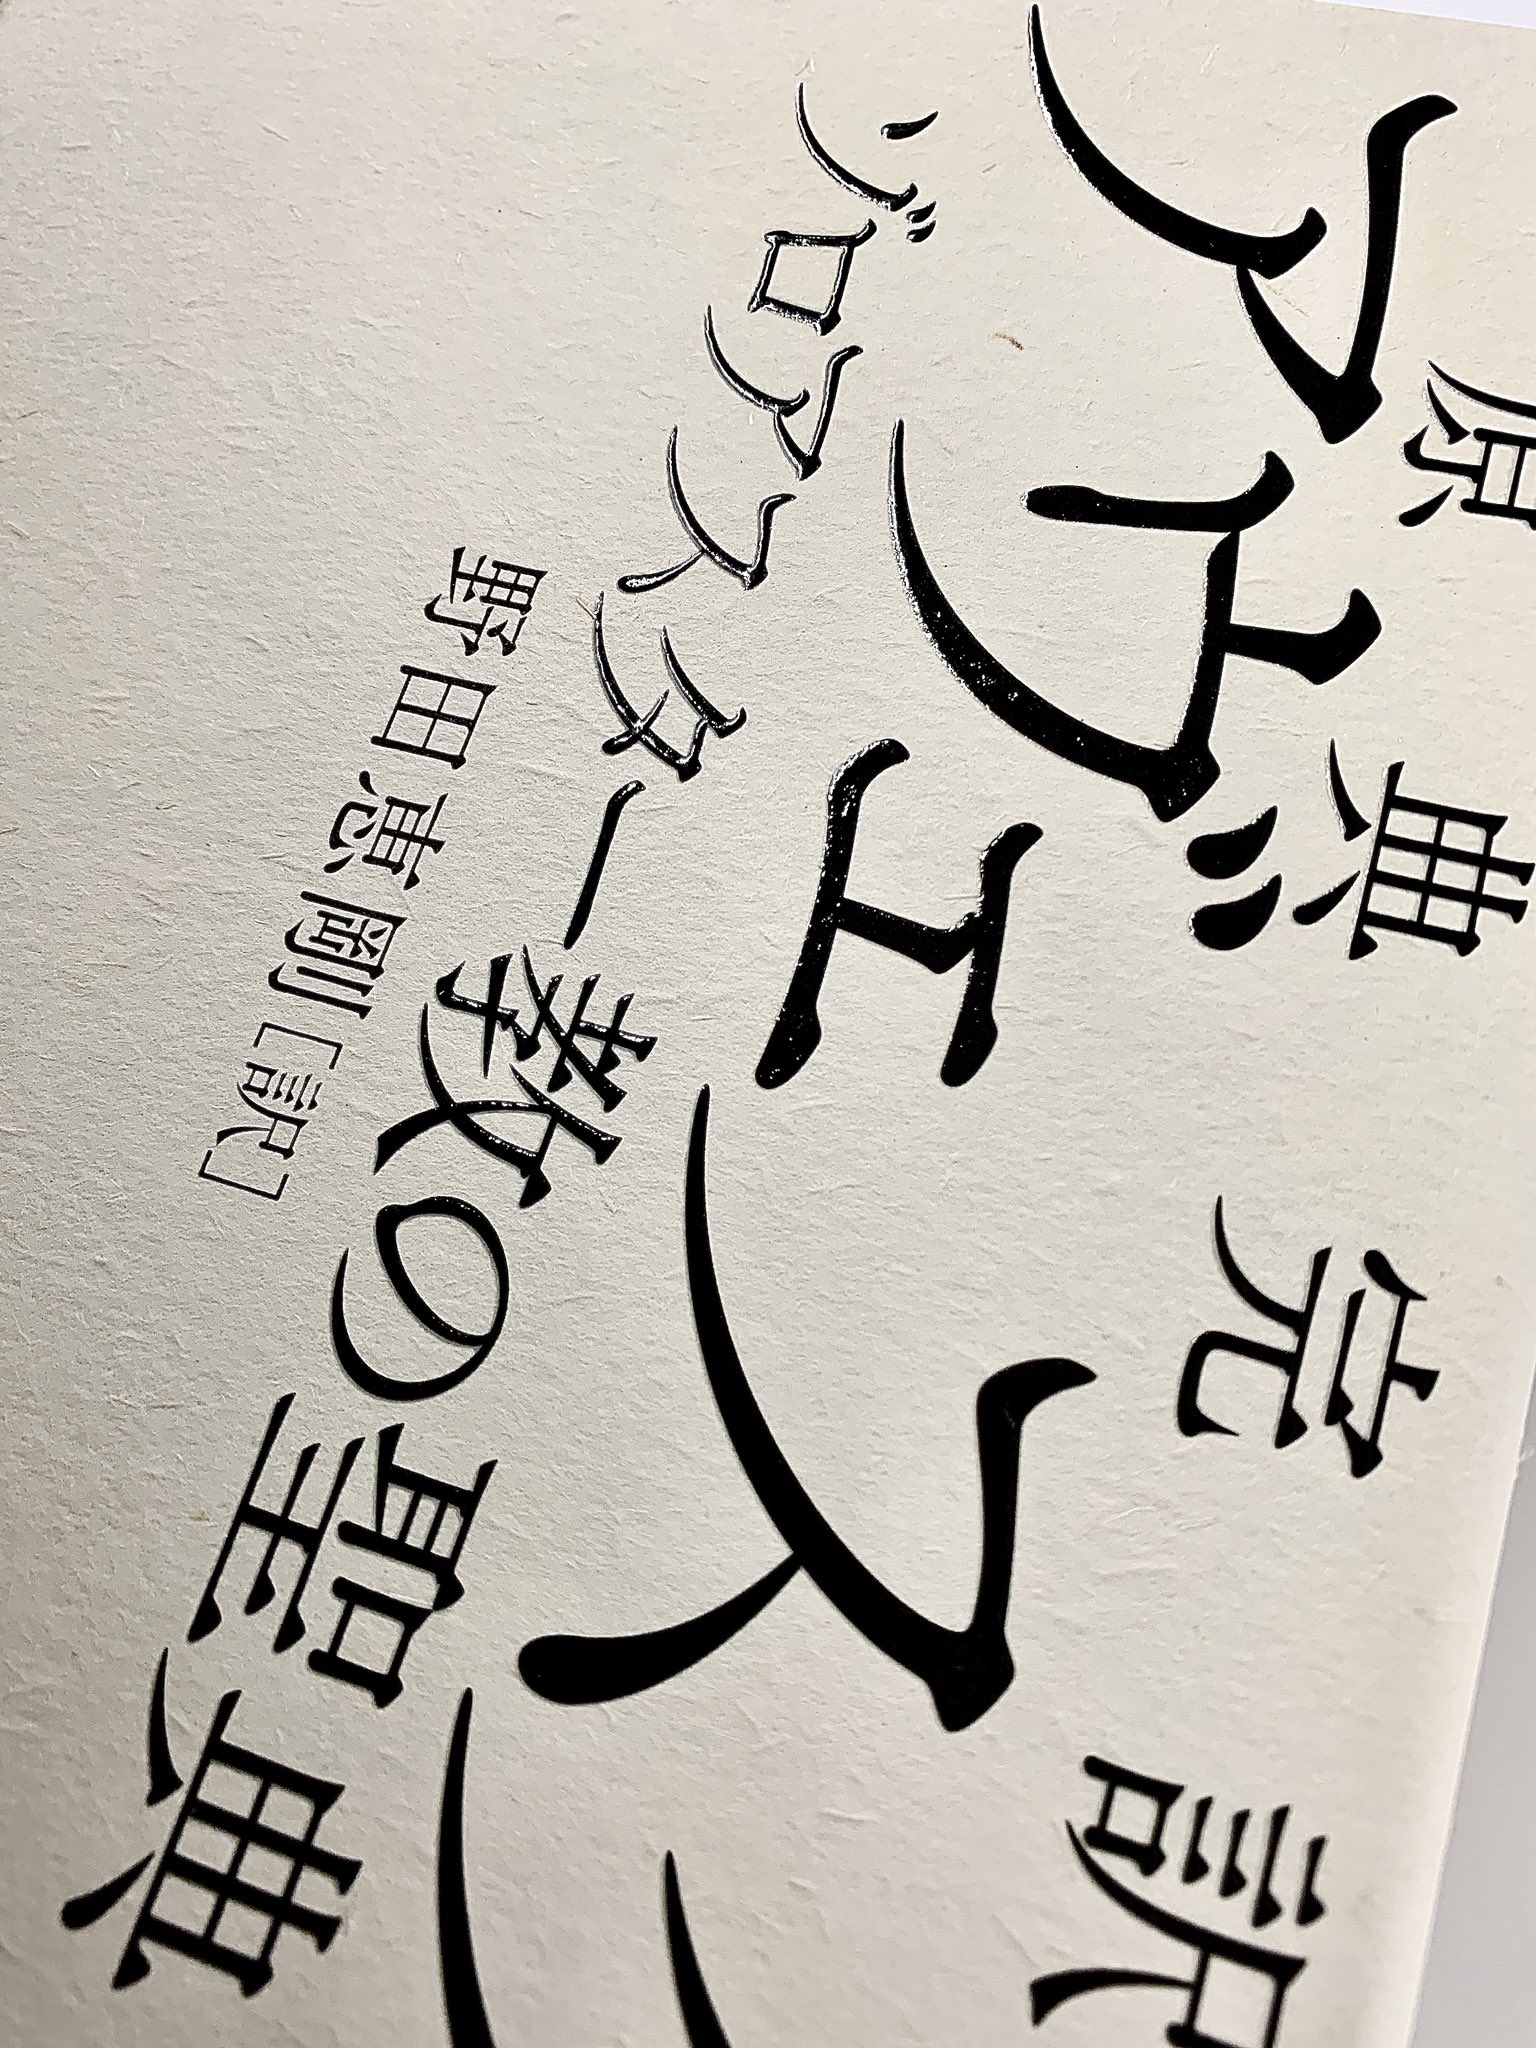 原典完訳
アヴェス
ゾロアスター教の聖典
野田恵剛[訳]